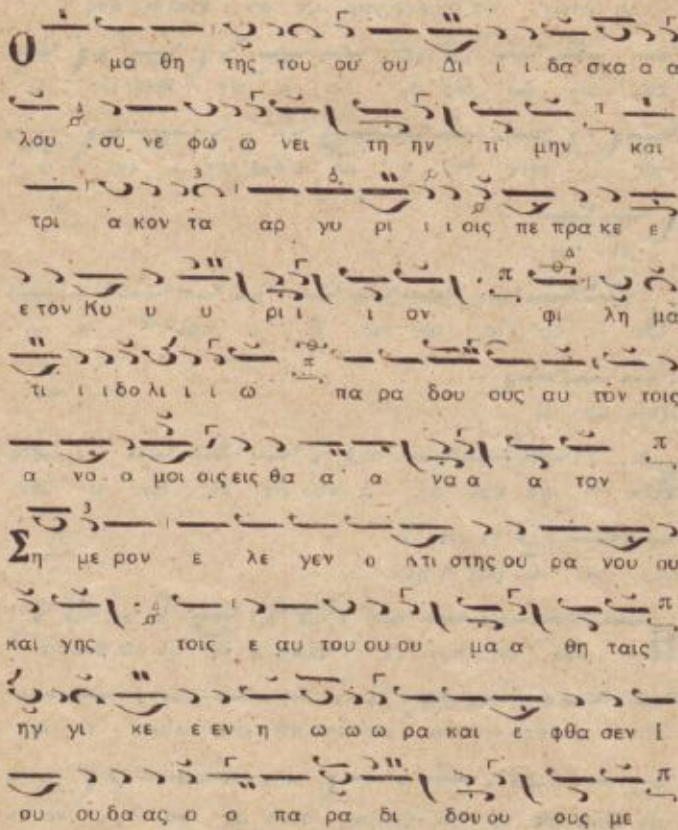 Ο μα θη της του ου ου Δι ι ι δα σκα α α
λου συ νε φω ω νει τη ην τι μην και
τρι α κον τα αρ γυ ρι ι ι οις πε πρα κε ε
ε τον Κυ υ υ ρι ι ι ον φι λη μα
τι ι ι δο λι ι ι ω πα ρα δου ους αυ τον τοις
α νο ο μοι οις εις θα α α να α α τον
Ση με ρον ε λε γεν ο κτι στης ου ρα νου ου
και γης τοις ε αυ του ου ου μα α θη ταις
ηγ γι κε ε εν η ω ω ω ρα και ε φθα σεν Ι
ου ου δα ας ο ο πα ρα δι δου ου ους με